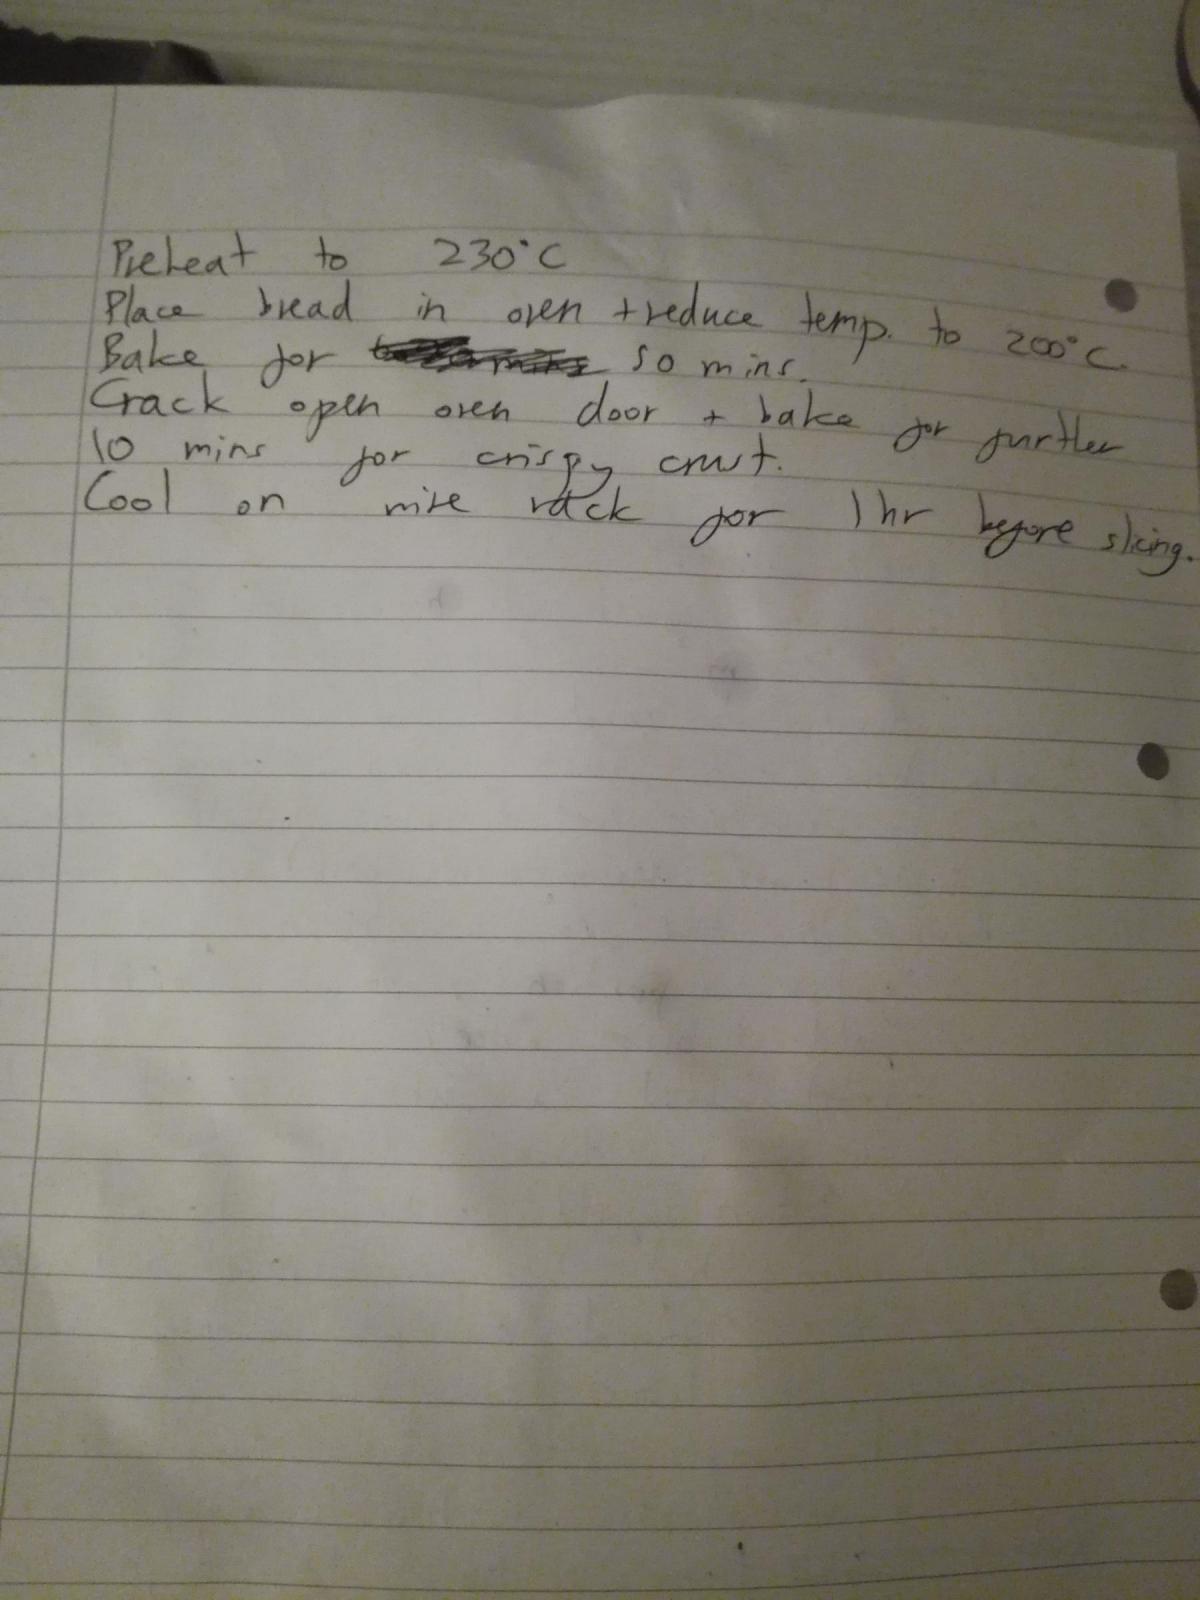 Preheat to 230°C
Place bread in oven + reduce temp. to 200°C.
Bake for 50 mins.
Crack open oven door + bake for further
10 mins for crispy crust.
Cool on wire rack for 1 hr before slicing.